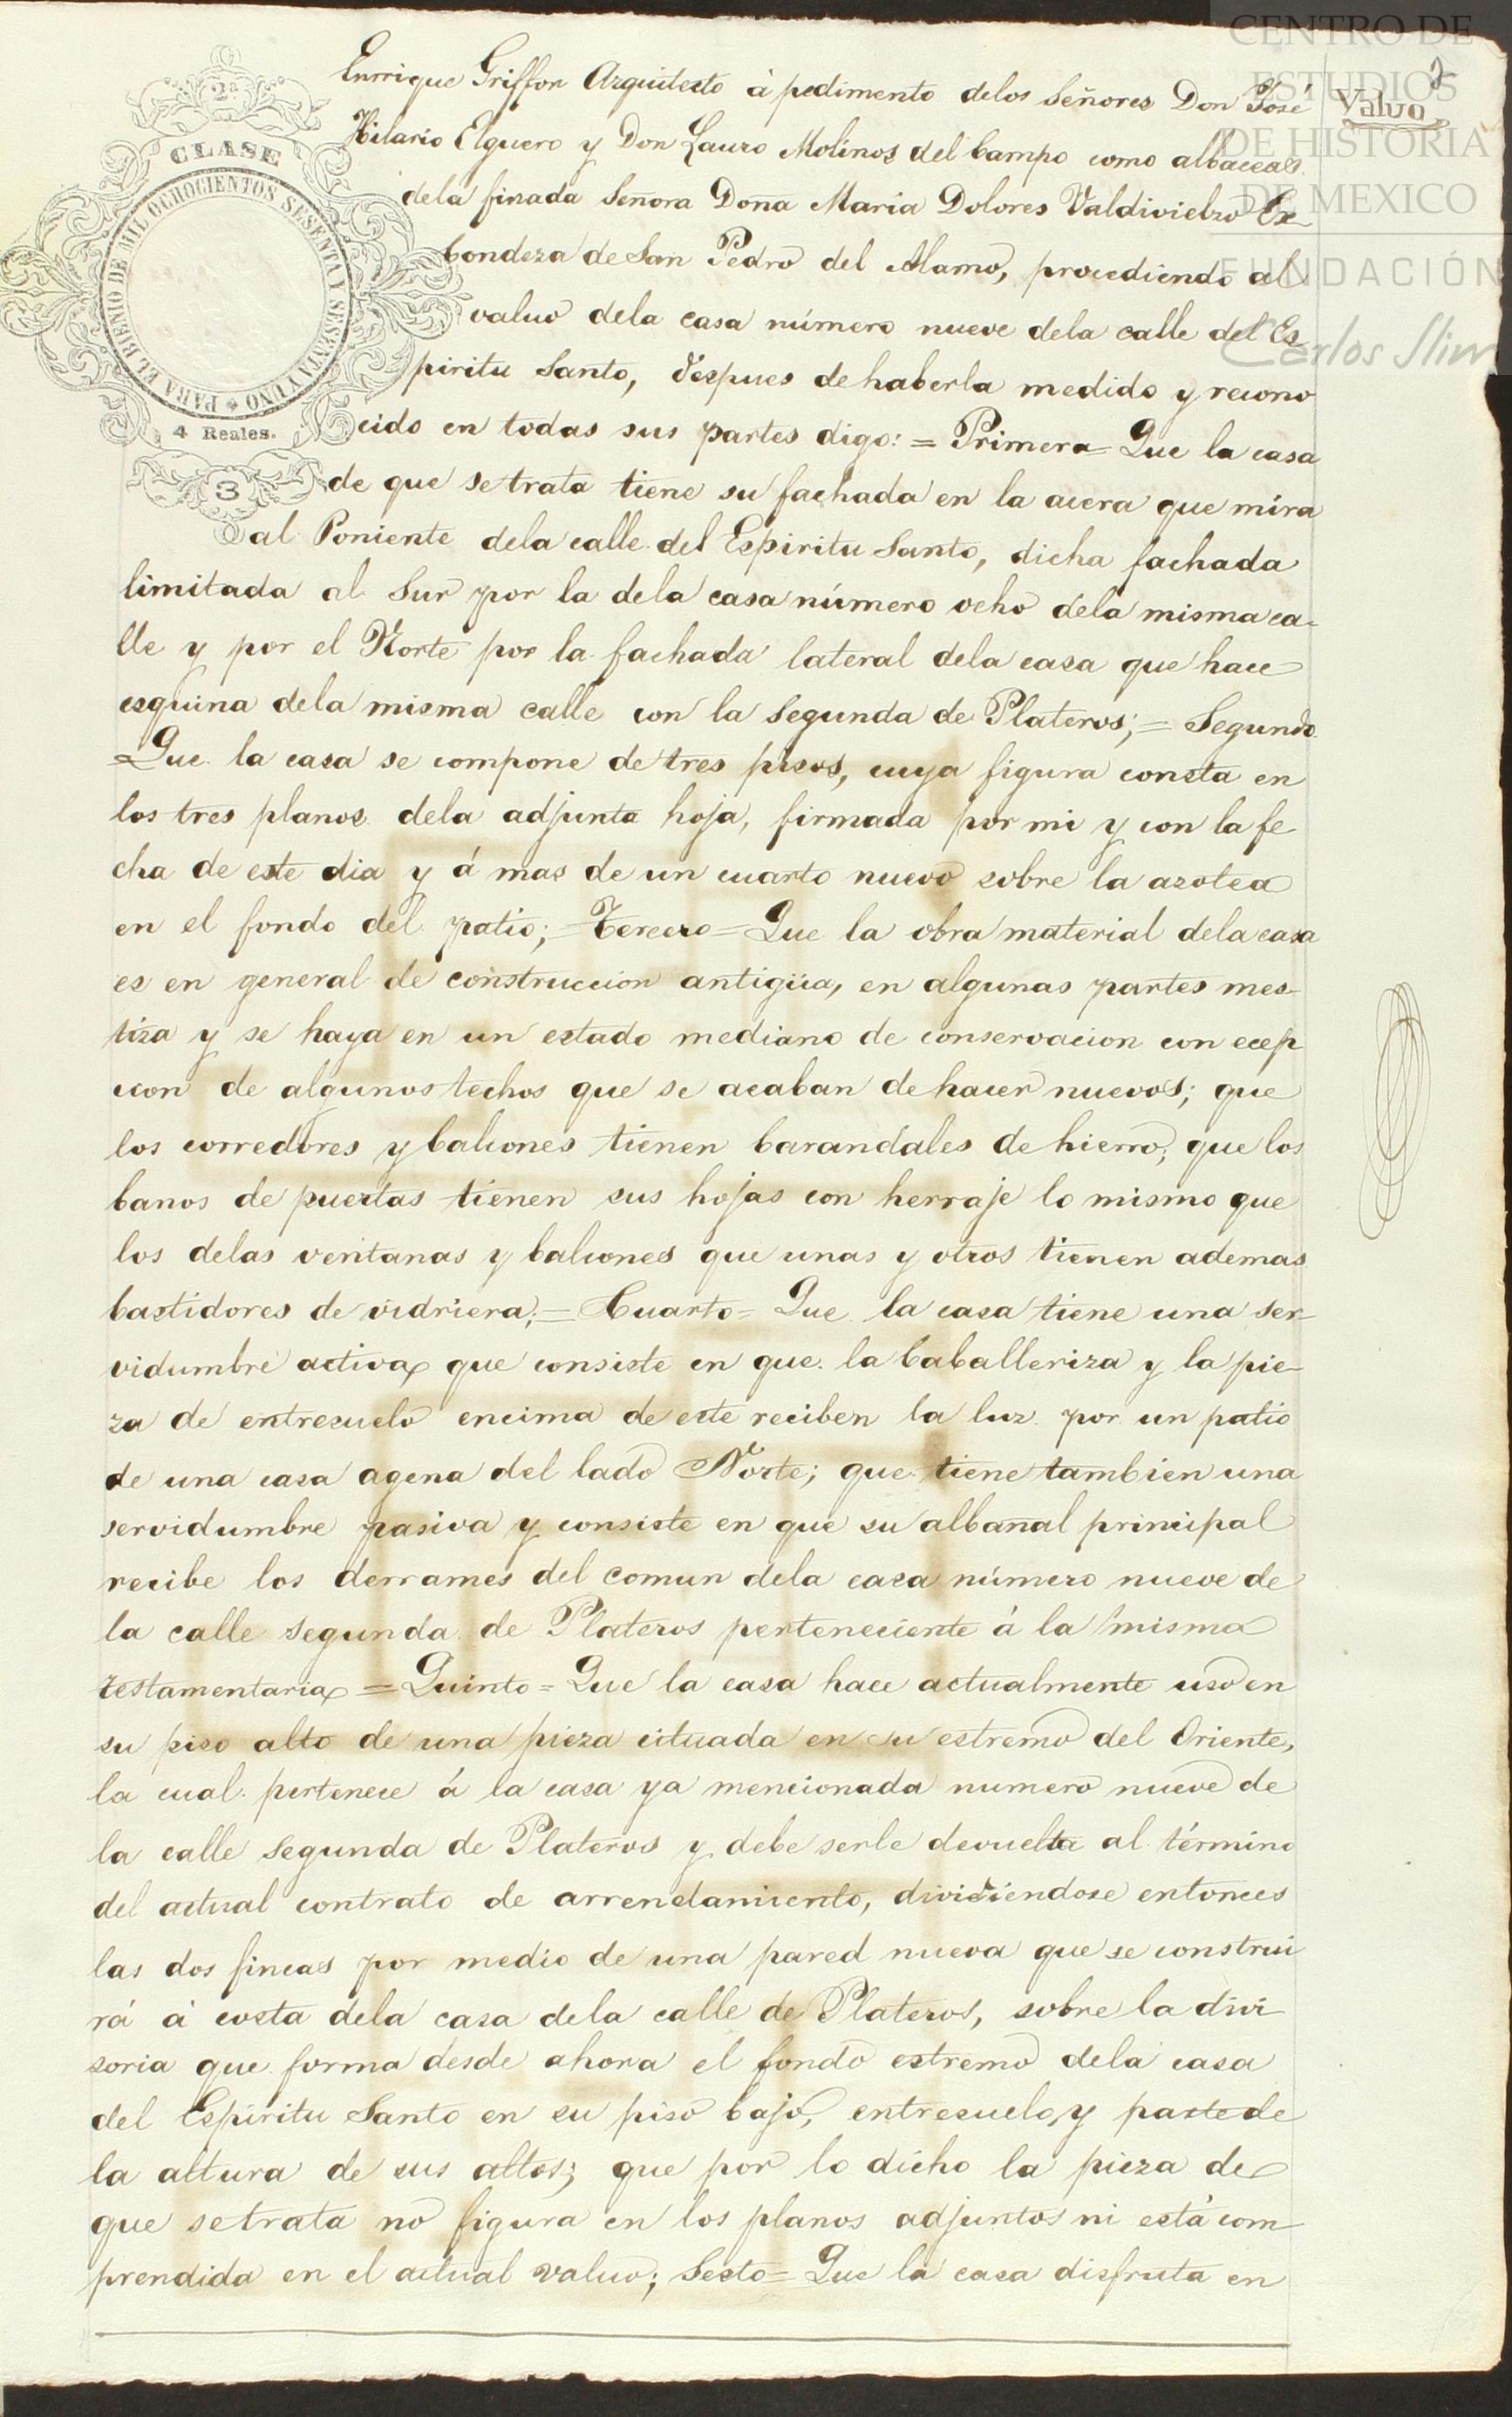 CENTRO DE
ESTUDIOS
DE HISTORIA
DE MEXICO
FUNDACIÓN
Carlos Slim
2
Valuo
2ª
CLASE
PARA EL BIENIO DE MIL OCHOCIENTOS SESENTA Y SESENTA Y UNO
4 Reales.
3
Enrrique Griffon Arquitecto à pedimento delos Señores Don José
Hilario Elguero y Don Lauro Molinos del Campo como albaceas
dela finada Señora Doña Maria Dolores Valdivielzo Ex
Condeza de San Pedro del Alamo, procediendo al
valuo dela casa número nueve dela calle del Es
piritu Santo, despues de haberla medido y recono
cido en todas sus partes digo: = Primera = Que la casa
de que se trata tiene su fachada en la acera que mira
al Poniente dela calle del Espiritu Santo, dicha fachada
limitada al Sur por la dela casa número ocho dela misma ca-
lle y por el Norte por la fachada lateral dela casa que hace
esquina dela misma calle con la Segunda de Plateros; = Segundo
= Que la casa se compone de tres pisos, cuya figura consta en
los tres planos dela adjunta hoja, firmada por mi y con la fe
cha de este dia y á mas de un cuarto nuevo sobre la azotea
en el fondo del patio; = Tercero = Que la obra material dela casa
es en general de construccion antigüa, en algunas partes mes-
tiza y se haya en un estado mediano de conservacion con ecep
cion de algunos techos que se acaban de hacer nuevos; que
los corredores y balcones tienen barandales de hierro, que los
banos de puertas tienen sus hojas con herraje lo mismo que
los delas ventanas y balcones que unas y otros tienen ademas
bastidores de vidriera; = Cuarto = Que la casa tiene una ser-
vidumbre activa que consiste en que la Caballeriza y la pie-
za de entresuelo encima de este reciben la luz por un patio
de una casa agena del lado Norte; que tiene tambien una
servidumbre pasiva y consiste en que su albañal principal
recibe los derrames del comun dela casa número nueve de
la calle Segunda de Plateros perteneciente á la misma
testamentaria = Quinto = Que la casa hace actualmente uso en
su piso alto de una pieza cituada en su estremo del Oriente,
la cual pertenece á la casa ya mencionada numero nueve de
la calle Segunda de Plateros y debe serle devuelta al término
del actual contrato de arrendamiento, dividiendose entonces
las dos fincas por medio de una pared nueva que se construi
rá á costa dela casa dela calle de Plateros, sobre la divi-
soria que forma desde ahora el fondo estremo dela casa
del Espiritu Santo en su piso bajo, entresuelo, y parte de
la altura de sus altos; que por lo dicho la pieza de
que se trata no figura en los planos adjuntos ni está com-
prendida en el actual valuo; Secto = Que la casa disfruta en